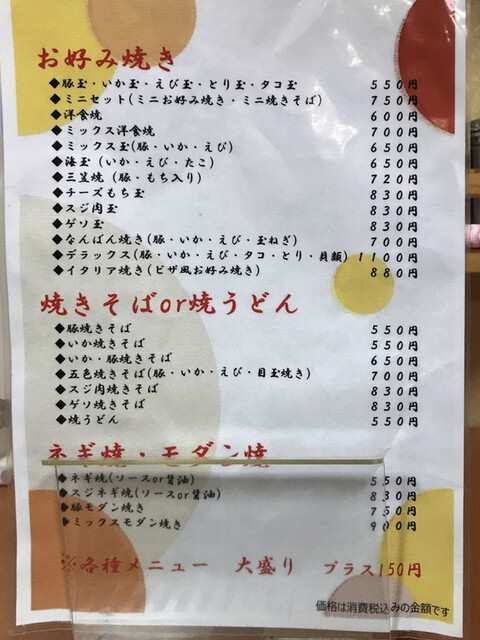 お好み焼き
◆豚玉・いか玉・えび玉・とり玉・タコ玉 550円
◆ミニセット(ミニお好み焼き・ミニ焼きそば) 750円
◆洋食焼 600円
◆ミックス洋食焼 700円
◆ミックス玉(豚・いか・えび) 650円
◆海玉(いか・えび・たこ) 650円
◆三笠焼(豚・もち入り) 720円
◆チーズもち玉 830円
◆スジ肉玉 830円
◆ゲソ玉 830円
◆なんばん焼き(豚・いか・えび・玉ねぎ) 700円
◆デラックス(豚・いか・えび・タコ・とり・貝類) 1100円
◆イタリア焼き(ピザ風お好み焼き) 880円
焼きそばor焼うどん
◆豚焼きそば 550円
◆いか焼きそば 550円
◆いか・豚焼きそば 650円
◆五色焼きそば(豚・いか・えび・目玉焼き) 700円
◆スジ肉焼きそば 830円
◆ゲソ焼きそば 830円
◆焼うどん 550円
ネギ焼・モダン焼
◆ネギ焼(ソースor醤油) 550円
◆スジネギ焼(ソースor醤油) 830円
◆豚モダン焼き 750円
◆ミックスモダン焼き 900円
※各種メニュー 大盛り プラス150円
価格は消費税込みの金額です